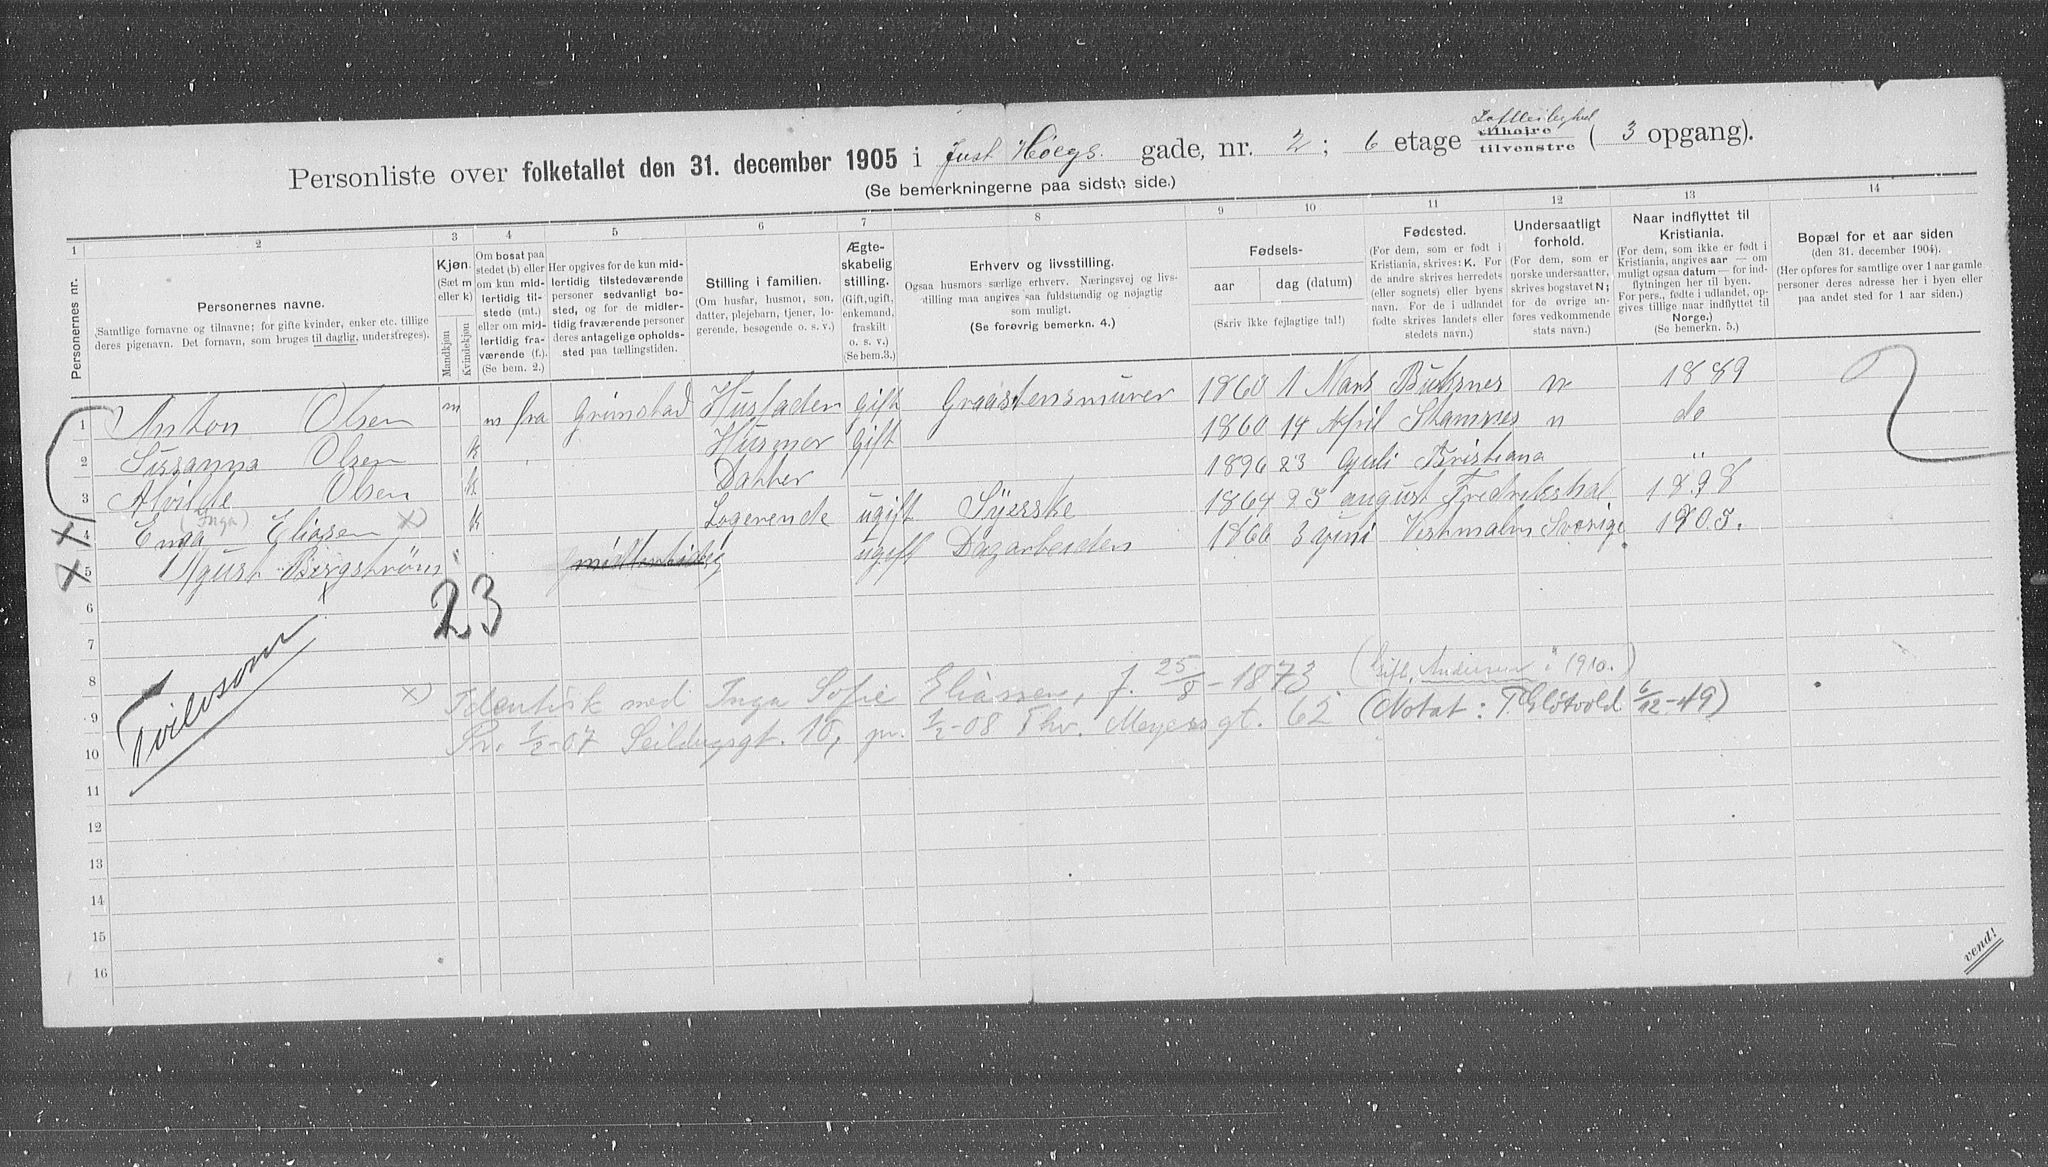 Personliste over folketallet den 31. december 1905 i Just Høegs gade, nr. 2; 6 etage tilhøire tilvenstre ( 3 opgang).
(Se bemerkningerne paa sidste side.)
1 2 3 4 5 6 7 8 9 10 11 12 13 14
Personernes nr.
Personernes navne.
(Samtlige fornavne og tilnavne; for gifte kvinder, enker etc. tillige deres pigenavn. Det fornavn, som bruges til daglig, understreges).
Kjøn.
(Sæt m eller k)
Mandkjøn
Kvindekjøn
Om bosat paa stedet (b) eller om kun midlertidig tilstede (mt.) eller om midlertidig fraværende (f.). (Se bem. 2.)
Her opgives for de kun midlertidig tilstedeværende personer sedvanlig bosted, og for de midlertidig fraværende personer deres antagelige opholdssted paa tællingstiden.
Stilling i familien.
(Om husfar, husmor, søn, datter, plejebarn, tjener, logerende, besøgende o. s. v.)
Ægteskabelig stilling.
(Gift, ugift, enkemand, fraskilt o. s. v.) (Se bem.3.)
Erhverv og livsstilling.
Ogsaa husmors særlige erhverv. Næringsvej og livsstilling maa angives saa fuldstændig og nøjagtig som muligt.
(Se forøvrig bemerkn. 4.)
Fødsels-
aar dag (datum)
(Skriv ikke fejlagtige tal!)
Fødested.
(For dem, som er født i Kristiania, skrives: K. For de andre skrives herredets (eller sognets) eller byens navn. For de i udlandet fødte skrives landets eller stedets navn.)
Undersaatligt forhold.
(For dem, som er norske undersaatter, skrives bogstavet N; for de øvrige anføres vedkommende stats navn.)
Naar indflyttet til Kristiania.
(For dem, som ikke er født i Kristiania, angives aar — om muligt ogsaa datum — for indflytningen her til byen. For pers., fødte i udlandet, opgives tillige naar indflyttet til Norge.)
(Se bemerkn. 5.)
Bopæl for et aar siden
(den 31. december 1904).
(Her opføres for samtlige over 1 aar gamle personer deres adresse her i byen eller paa andet sted for 1 aar siden.)
1 Anton Olsen m m fra Grimstad Husfader Gift Graastensmurer 1860 1 Mars Buksnes n 1889
2 Susanna Olsen k Husmor Gift 1860 14 April Stamnes n do
3 Alvilde Olsen k Datter 1896 23 Juli Kristiana "
4 Emma (Inga) Eliasen x) k Logerende ugift Syerske 1864 25 august Fredrikshal 1898
5 August Bergstrøm midlertidig ugift Dagarbeider 1866 3 Juni Vestmalm Sverige 1905.
6
23
7
Tvilsom
8 x) Identisk med Inga Sofie Eliassen, f. 25/8 - 1873 (Gift Andersen i 1910.)
9 Pr. 1/2-07 Seildugsgt. 10, pr. 1/2-08 Thv. Meyersgt. 62 (Notat: T. Glötvold 6/12-49)
10
11
12
13
14
15
16
vend!